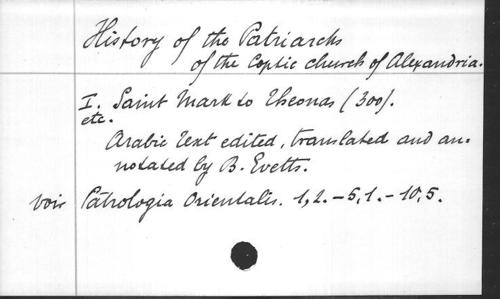 History of the Patriarchs
of the Coptic church of Alexandria.
I. Saint Mark to Theonas (300).
etc.
Arabic Text edited, translated and an-
notated by B. Evetts.
voir Patrologia Orientalis. 1,2. – 5,1. – 10,5.